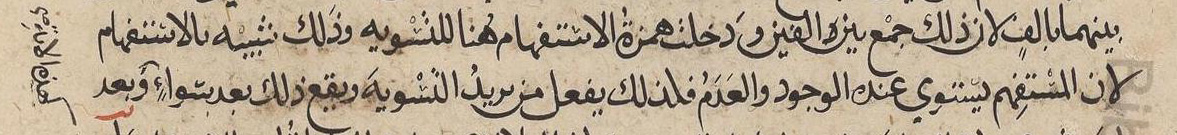 بينهما بالف لان ذلك جمع بين الفين ودخلت همزة الاستفهام هنا للتسوية وذلك تشبيه بالاستفهام
لان المستفهم يستوي عنده الوجود والعدم فلذلك يفعل من يريد التسوية ويقع ذلك بعد سواء وبعد